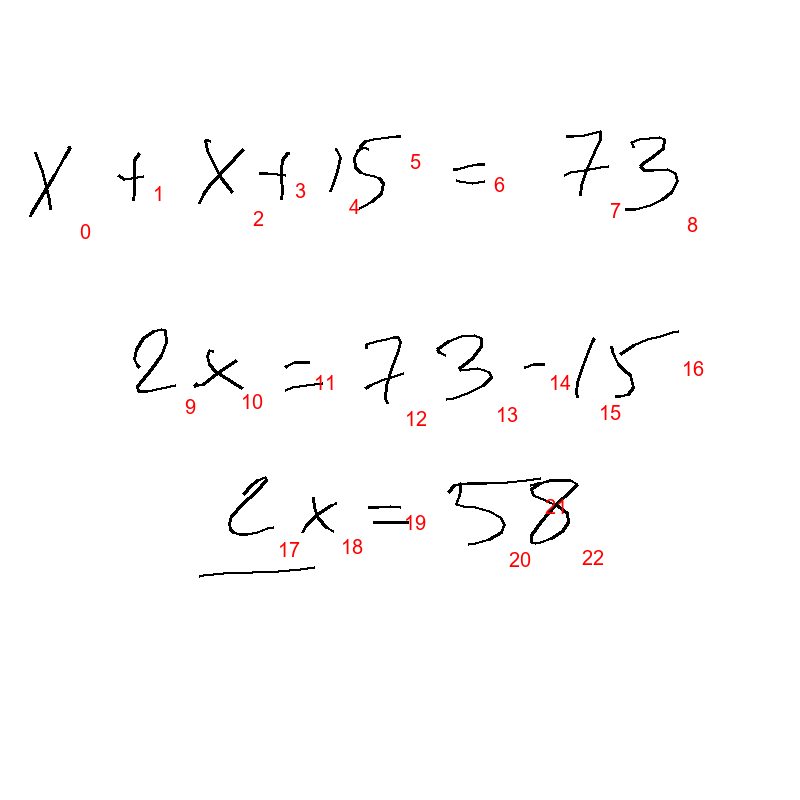 x + x + 15 = 73
0 1 2 3 4 5 6 7 8
2x = 73 - 15
9 10 11 12 13 14 15 16
2x = 58
17 18 19 20 21 22